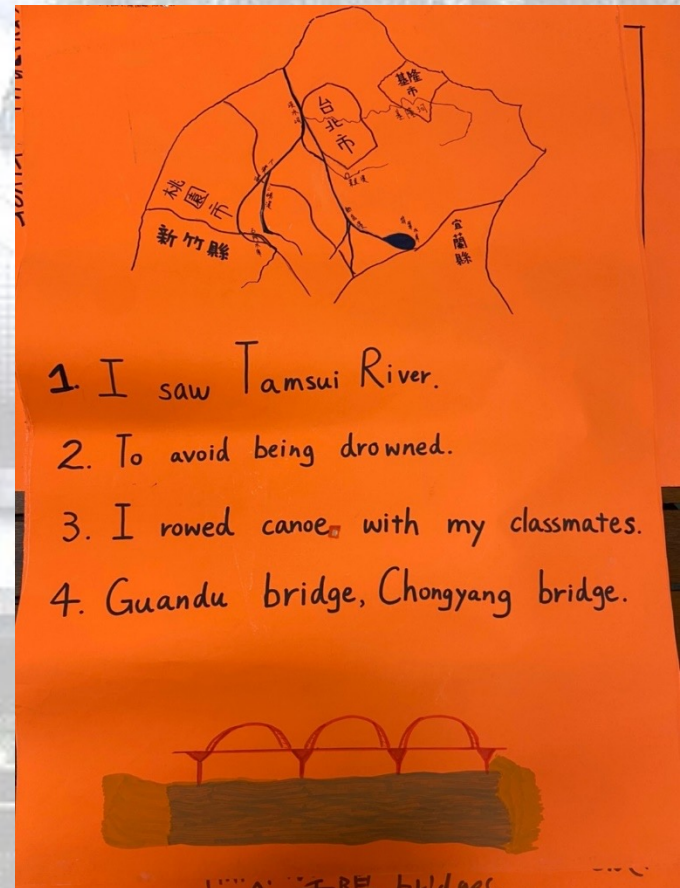 台北市
基隆市
基隆河
桃園市
新竹縣
宜蘭縣
1. I saw Tamsui River.
2. To avoid being drowned.
3. I rowed canoe with my classmates.
4. Guandu bridge, Chongyang bridge.
bridges